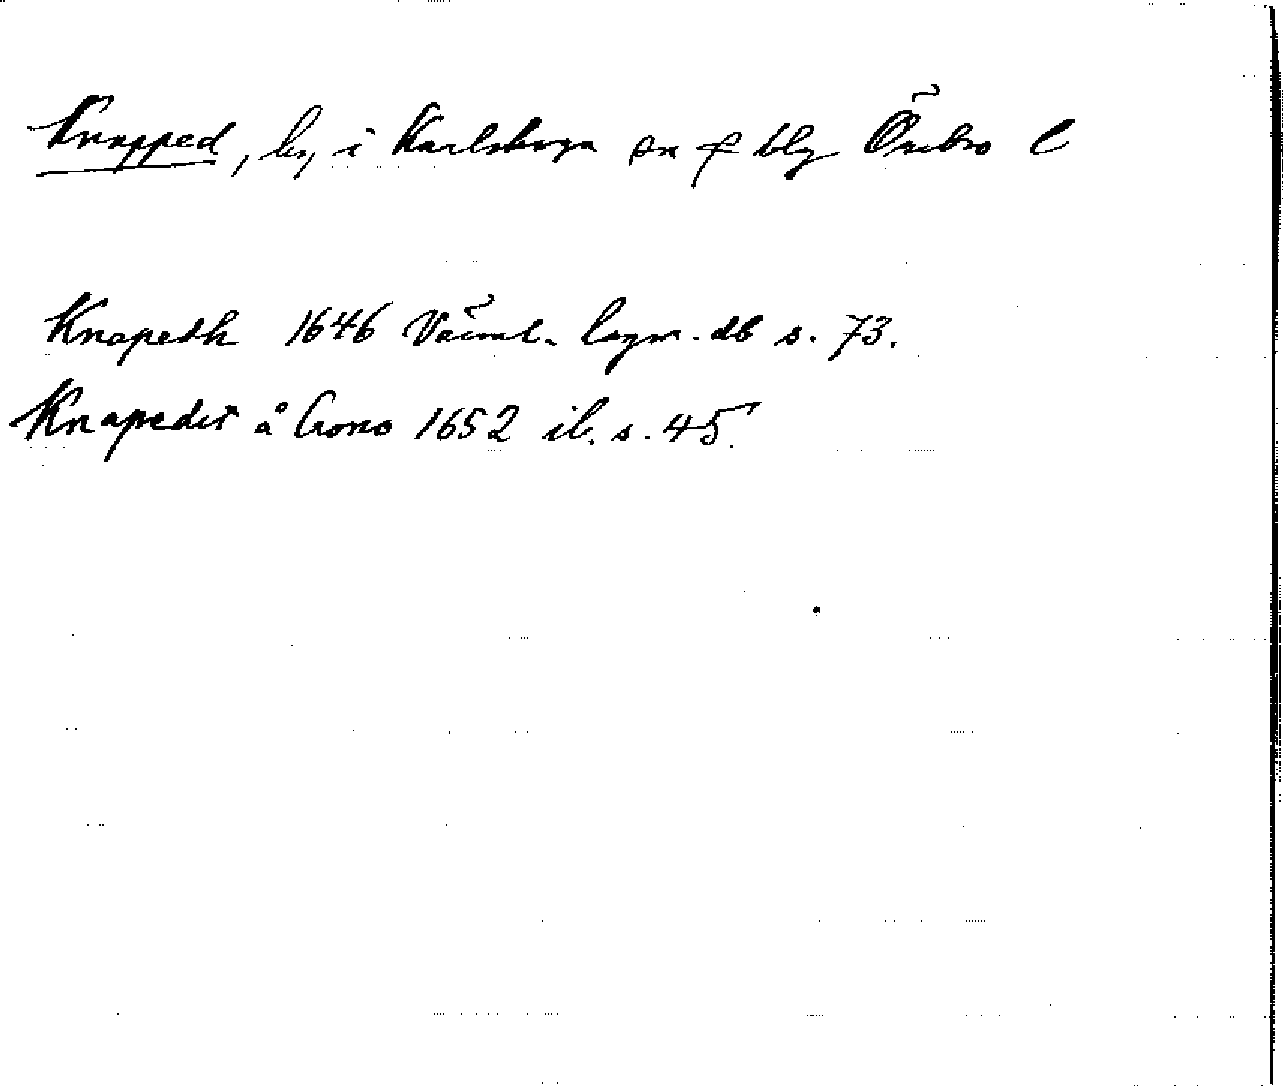 Knapped, by i Karlskoga sn o blg Örebro l
Knapedh 1646 Värml. lagm. db s. 73.
Knapedet å Crono 1652 ib. s. 45.